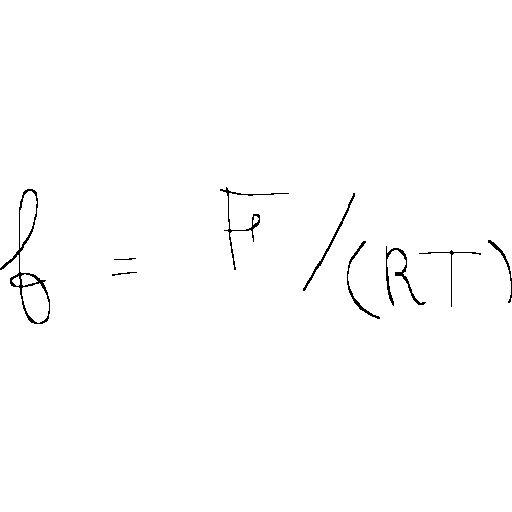 f = F/(RT)